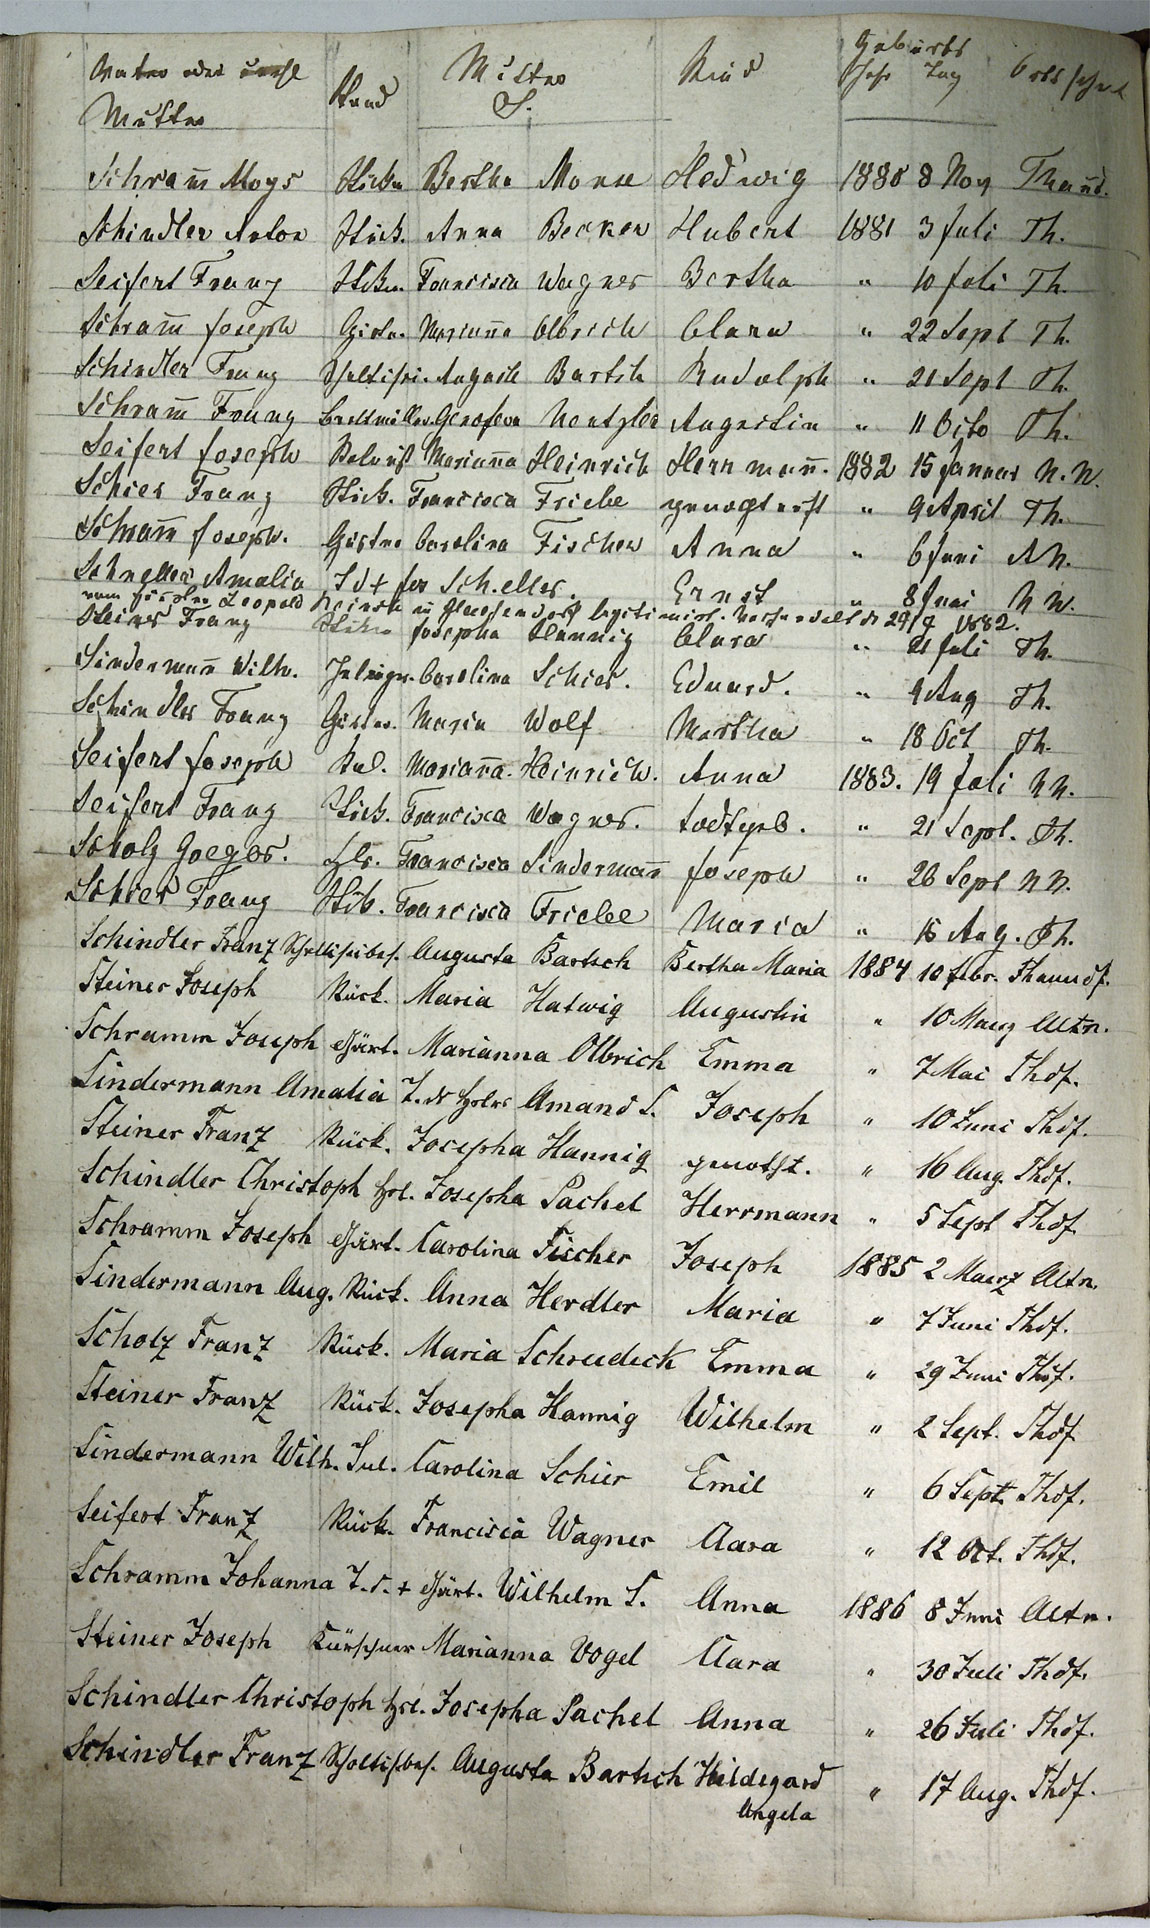 Vater oder unehl Mutter Stand Mutter Kind Geburts Jahr Tag Ortschaft
Schram̄ Aloys Stück. Bertha Hedwig 1880 8 Nov Thand.
Schindler Anton Stück. Anna Becker Hubert 1881 3 Juli Th.
Seifert Franz Stück. Francisca Wagner Bertha " 10 Juli Th.
Schram̄ Joseph Gärtn. Marian̄a Olbrich Clara " 22 Sept Th.
Schindler Franz Scholtisei. Auguste Bartsch Rudolph " 21 Sept Th.
Schram̄ Franz Genofeva Wentzler Augustin " 11 Octo Th.
Seifert Joseph Marian̄a Heinrich Herrman̄. 1882 15 Januar N.N.
Schier Franz Stück. Francisca Friebe " 9 April Th.
Schram̄ Joseph. Gärtner Carolina Fischer Anna " 6 Juni A N.
Schneller Amalia Ernst " 8 Juni N N.
Leopold legitimirt. 29/7 1882.
Steiner Franz Josepha Hannig Clara " 21 Juli Th.
Sinderman̄ Wilh. Carolina Schier. Eduard. " 9 Aug Th.
Schindler Franz Gärtner. Maria Wolf Martha " 18 Oct Th.
Seifert Joseph Marian̄a. Heinrich. Anna 1883. 19 Juli N N.
Seifert Franz Stück. Francisca Wagner. todtgeb. " 21 Sept. Th.
Scholz Gregor. Hsl. Francisca Sinderman̄ Joseph " 26 Sept N N.
Schier Franz Stück. Francisca Friebe Maria " 15 Aug. Th.
Schindler Franz Scholtiseibes. Augusta Bartsch Bertha Maria 1884 10 Febr. Thanndf.
Steiner Joseph Rück. Maria Hatwig Augustin " 10 Maerz Altn.
Schramm Joseph Gärt. Marianna Olbrich Emma " 7 Mai Thdf.
Sindermann Amalia T. d. Hslrs Amand S. Joseph " 10 Juni Thdf.
Steiner Franz Rück. Josepha Hannig genotht. " 16 Aug. Thdf.
Schindler Christoph Hsl. Josepha Pachel Herrmann " 5 Sept Thdf.
Schramm Joseph Gärt. Carolina Fischer Joseph 1885 2 Maerz Altn.
Sindermann Aug. Rück. Anna Herdler Maria " 7 Juni Thdf.
Scholz Franz Rück. Maria Schreudeck Emma " 29 Juni Thdf.
Steiner Franz Rück. Josepha Hannig Wilhelm " 2 Sept. Thdf
Sindermann Wilh. Inl. Carolina Schier Emil " 6 Sept. Thdf.
Seifert Franz Rück. Francisca Wagner Clara " 12 Oct. Thdf.
Schramm Johanna T. d. + Gärt. Wilhelm S. Anna 1886 8 Juni Altn.
Steiner Joseph Kürschner Marianna Vogel Clara " 30 Juli Thdf.
Schindler Christoph Hsl. Josepha Pachel Anna " 26 Juli Thdf.
Schindler Franz Scholtisbes. Augusta Bartsch Hildegard " 17 Aug. Thdf.
Angela